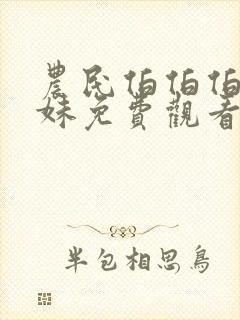 農民伯伯伯
妹免費觀看
半包相思鳥